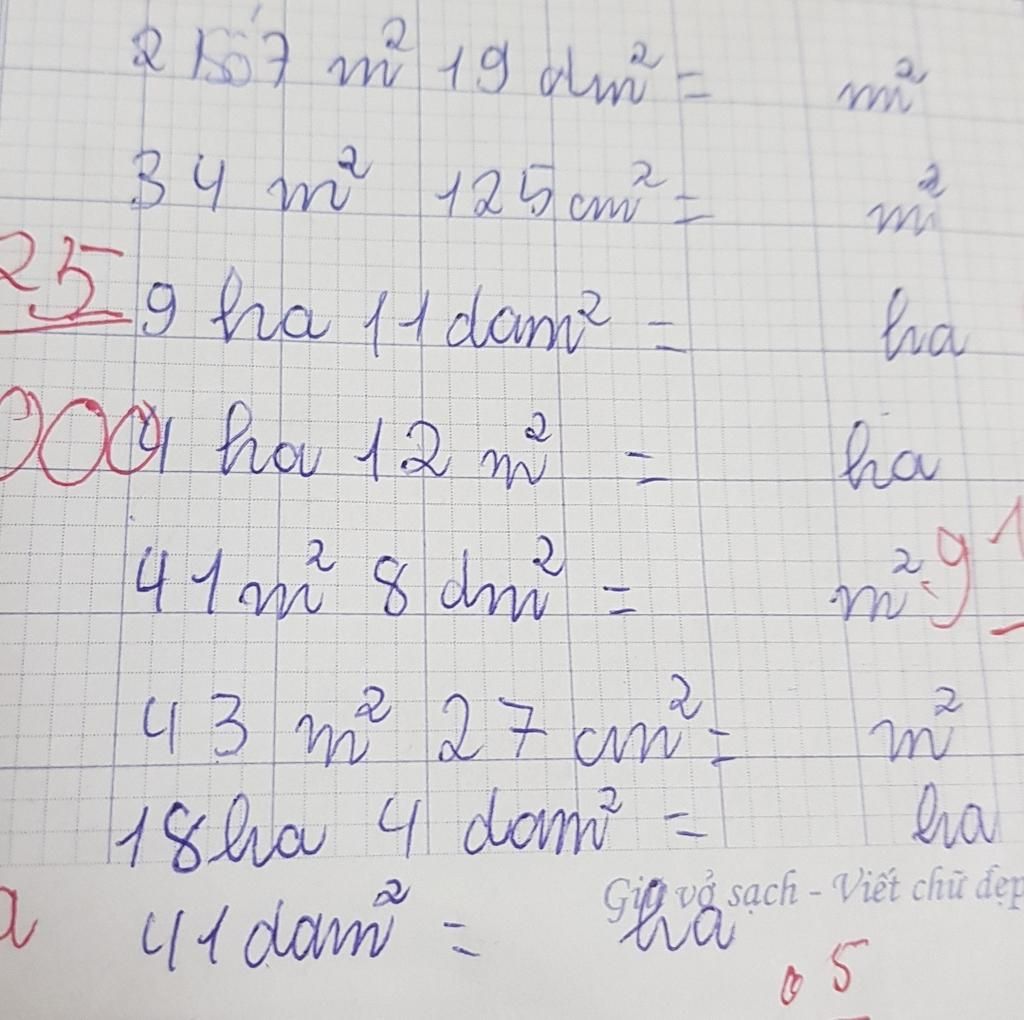 2 157 m² 19 dm² = m²
34 m² 125 cm² = m²
25
9 ha 11 dam² = ha
4 ha 12 m² = ha
41 m² 8 dm² = m²
91
43 m² 27 cm² = m²
18 ha 4 dam² = ha
Giữ vở sạch - Viết chữ đẹp
41 dam² = ha
5